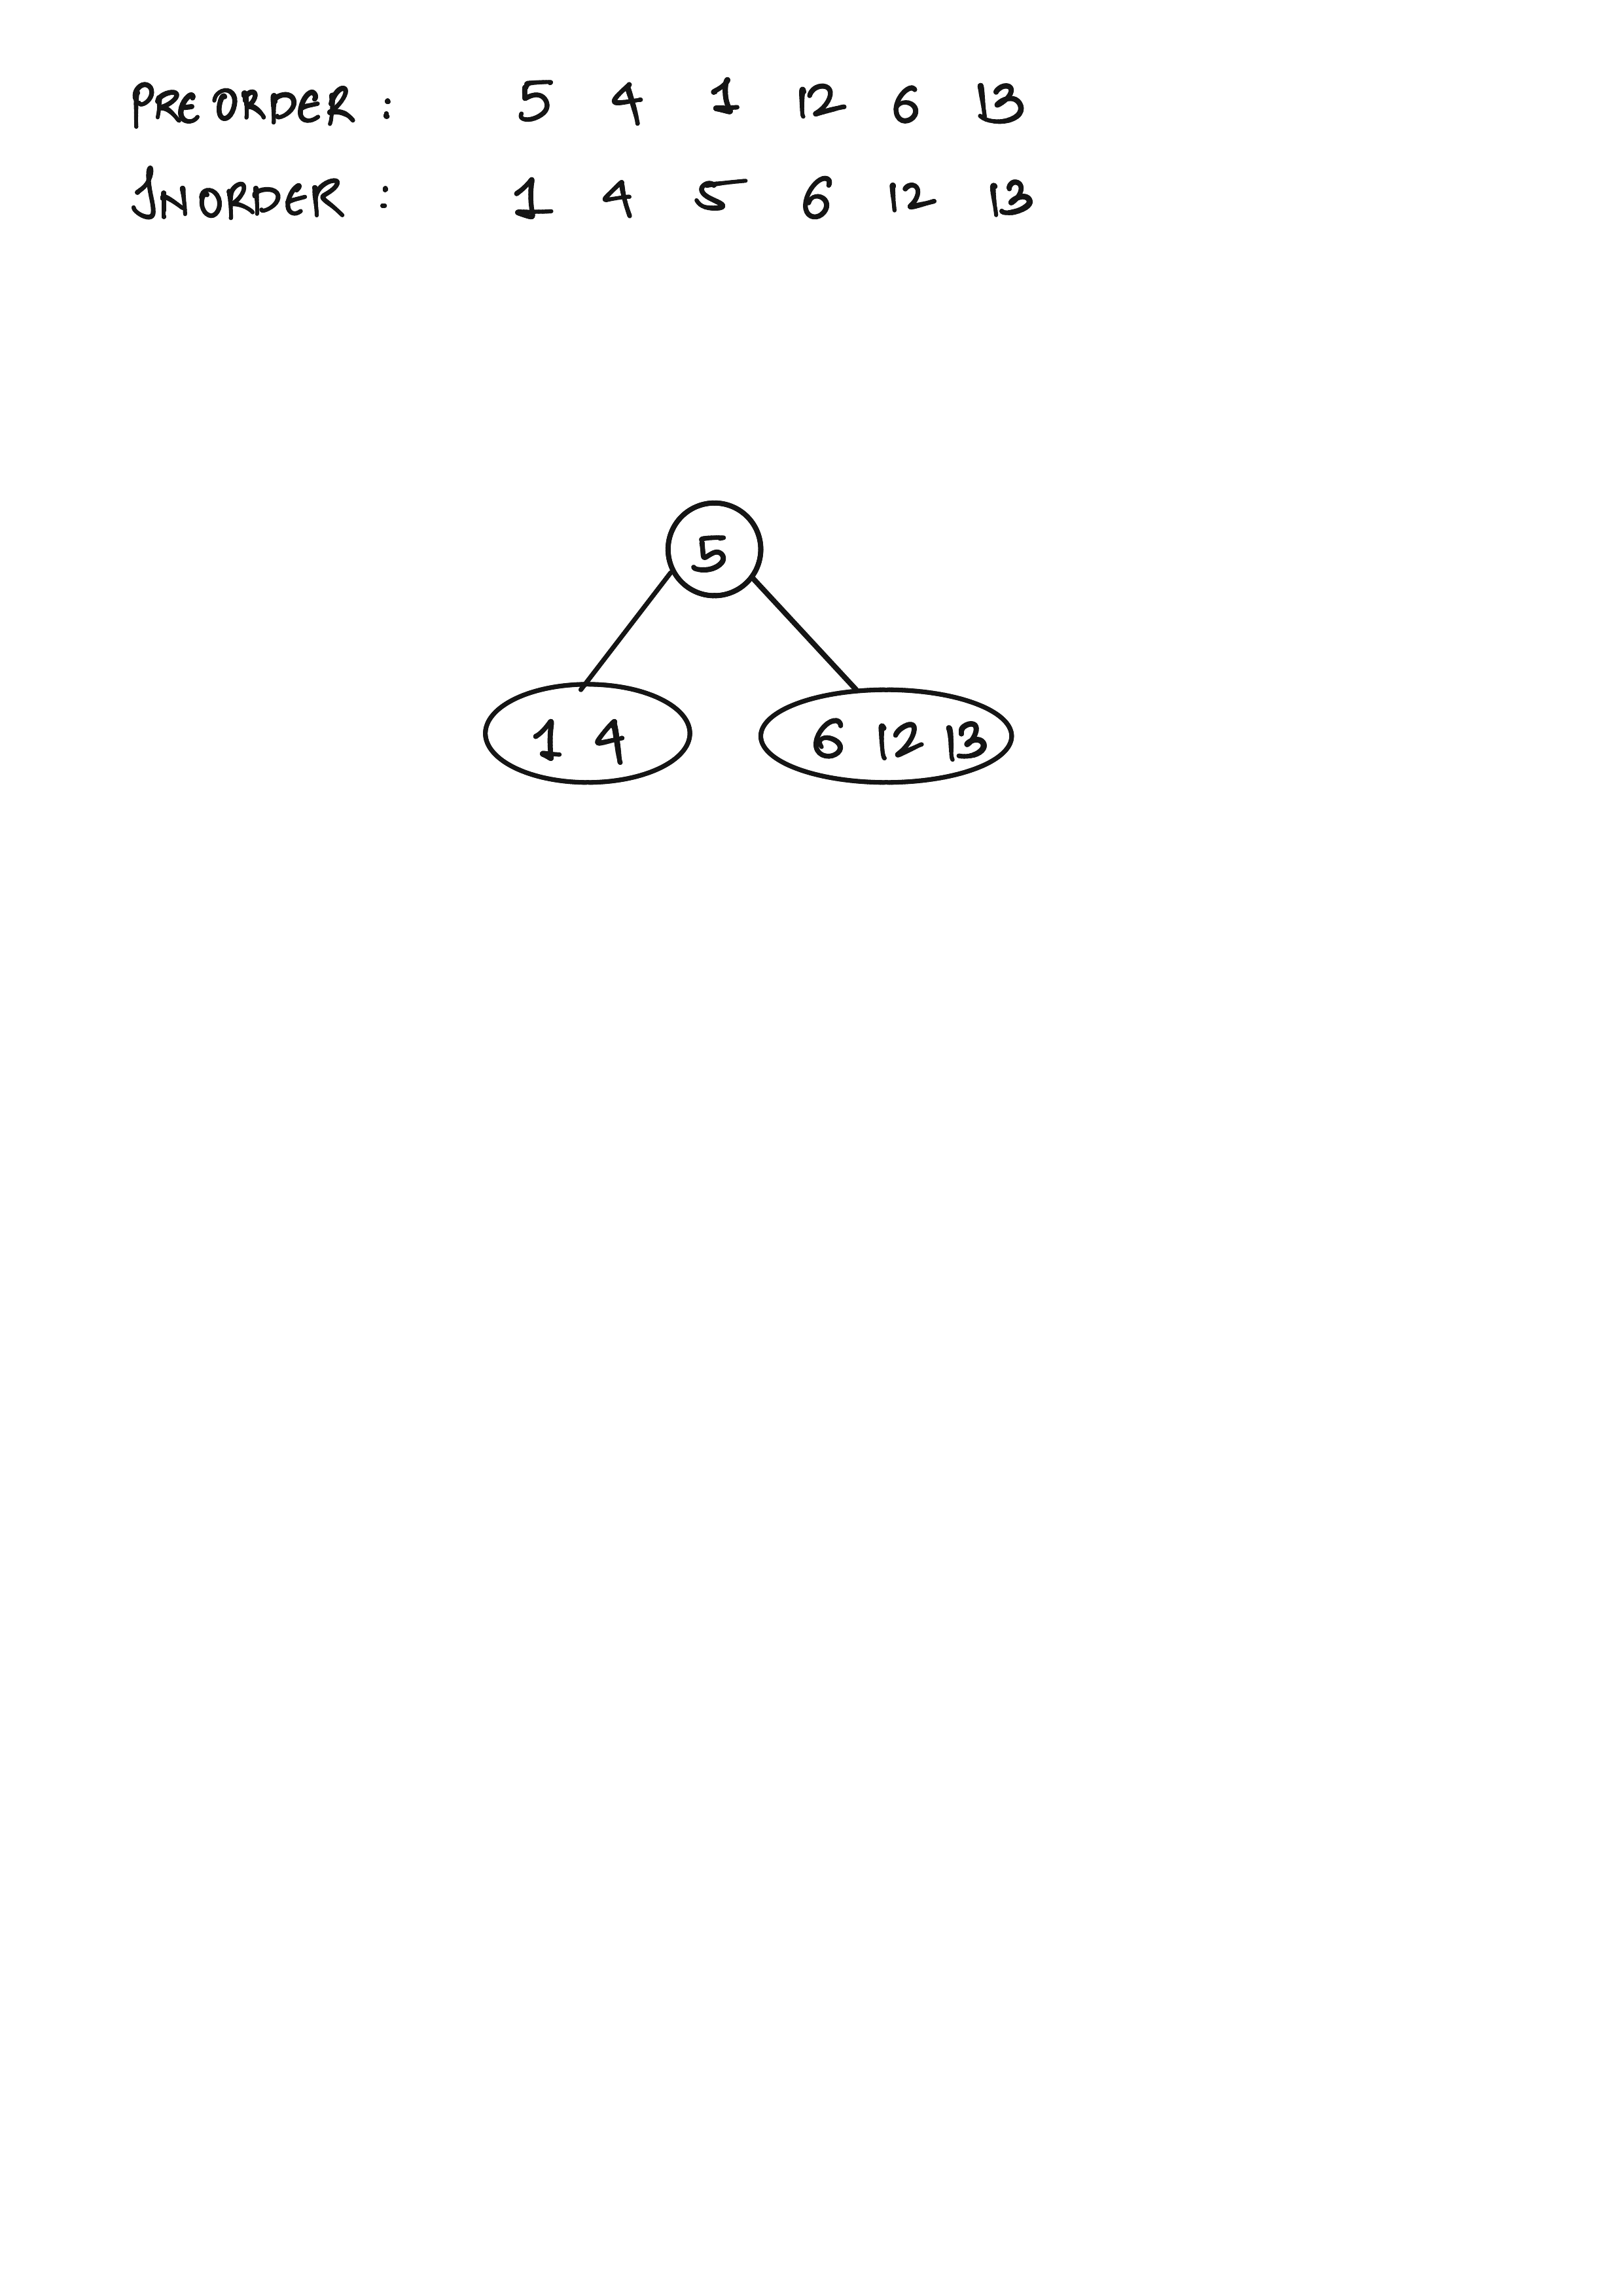 PREORDER : 5 4 1 12 6 13
INORDER : 1 4 5 6 12 13
5
1 4 6 12 13